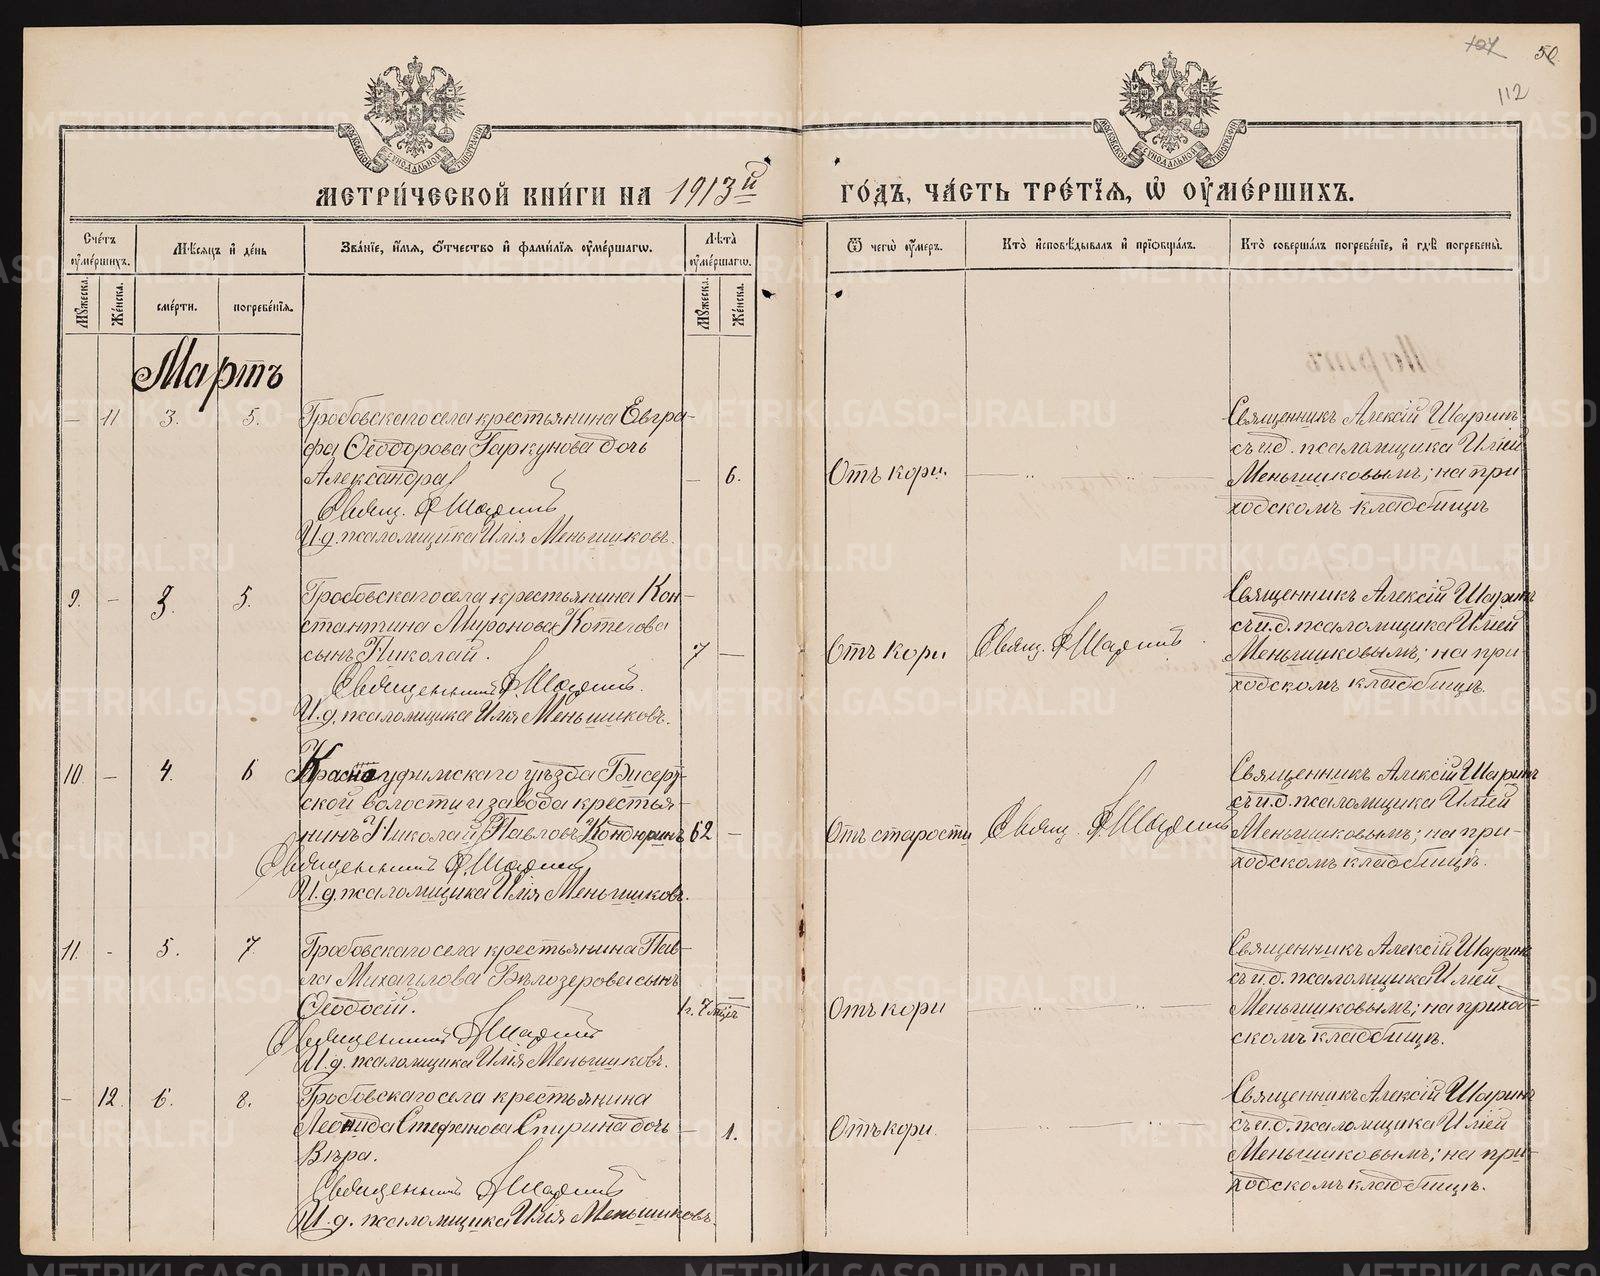 107 50
112
МЕТРИ́ЧЕСКОЙ КНИ́ГИ НА 1913й ГО́ДЪ, ЧА́СТЬ ТРЕ́ТІѦ, Ѡ҆ ОУ҆МЕ́РШИХЪ.
Сче́тъ оу҆ме́ршихъ.
Мѣ́сяцъ и҆ де́нь
Зва́нїе, и҆́мѧ, ѻ҆́тчество и҆ фами́лїѧ оу҆ме́ршагѡ.
Лѣ́та̀ оу҆ме́ршагѡ.
Ѿ чегѡ̀ оу҆́меръ.
Кто̀ и҆сповѣ́дывалъ и҆ прїѡбща́лъ.
Кто̀ соверша́лъ погребе́нїе, и҆ гдѣ̀ погребены̀.
Мꙋ́жеска.
Же́нска.
сме́рти.
погребе́нїѧ.
Мꙋ́жеска.
Же́нска.
Мартъ
— 11 3. 5. Гробовскаго села крестьянина Евгра-
фа Ѳеодорова Гаркунова дочь
Александра — 6.
Свящ. А Шаринъ
И.д. псаломщика Илія Меньшиковъ.
Отъ кори.
Священникъ Алексій Шаринъ
съ и.д. псаломщика Иліей
Меньшиковымъ; на при-
ходскомъ кладбищѣ
9. — 3. 5. Гробовскаго села крестьянина Кон-
стантина Миронова Котегова
сынъ Николай. 7 —
Священникъ А Шаринъ.
И.д. псаломщика Илія Меньшиковъ.
Отъ кори Свящ. А Шаринъ
Священникъ Алексій Шаринъ
съ и.д. псаломщика Иліей
Меньшиковымъ; на при-
ходскомъ кладбищѣ.
10. — 4. 6 Красноуфимскаго уѣзда Бисерт-
ской волости и завода крестья-
нинъ Николай Павловъ Кондюринъ 62 —
Священникъ А Шаринъ
И.д. псаломщика Илія Меньшиковъ.
Отъ старости Свящ. А Шаринъ
Священникъ Алексій Шаринъ
съ и.д. псаломщика Иліей
Меньшиковымъ; на при-
ходскомъ кладбищѣ.
11. - 5. 7. Гробовскаго села крестьянина Пав-
ла Михаилова Бѣлозерова сынъ
Ѳеодосій. 1 г. 7 мцъ —
Священникъ А Шаринъ
И.д. псаломщика Илія Меньшиковъ.
Отъ кори
Священникъ Алексій Шаринъ
съ и.д. псаломщика Иліей
Меньшиковымъ; на приход-
скомъ кладбищѣ.
— 12. 6. 8. Гробовскаго села крестьянина
Леонида Стефанова Спирина дочь — 1.
Вѣра.
Священникъ А Шаринъ
И.д. псаломщика Илія Меньшиковъ.
Отъ кори.
Священникъ Алексій Шаринъ
съ и.д. псаломщика Иліей
Меньшиковымъ; на при-
ходскомъ кладбищѣ.
METRIKI.GASO-URAL.RU